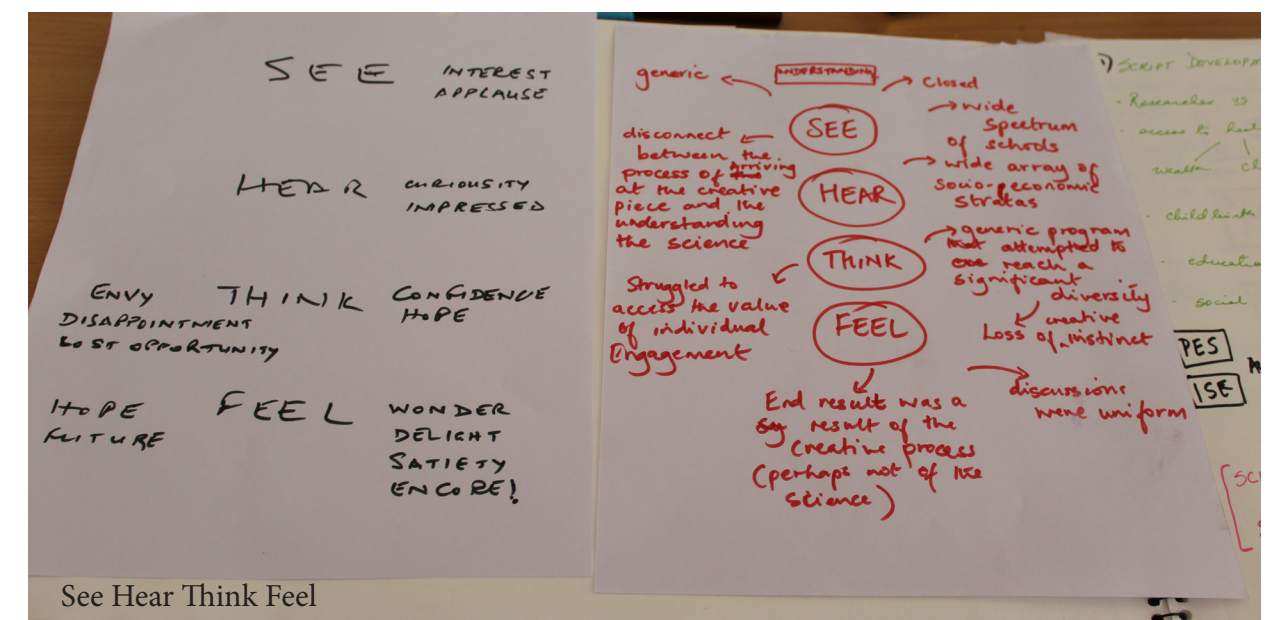 SEE INTEREST
APPLAUSE
HEAR CURIOUSITY
IMPRESSED
ENVY THINK CONFIDENCE
DISAPPOINTMENT HOPE
LOST OPPORTUNITY
HOPE FEEL WONDER
FUTURE DELIGHT
SATIETY
ENCORE!
UNDERSTANDING
generic
Closed
SEE
HEAR
THINK
FEEL
disconnect
between the
process of Arriving
at the creative
piece and the
understanding
the science
Struggled to
access the value
of individual
Engagement
wide
Spectrum
of schools
wide array of
socio-economic
stratas
generic program
that attempted to
reach a
significant
diversity
creative
Loss of instinct
discussions
were uniform
End result was a
result of the
creative process
(perhaps not of the
science)
1) SCRIPT DEVELOPM
- Researcher vs
- access to heal
wealth cl
- child birth
- education
- social
PES
ISE
SC
See Hear Think Feel